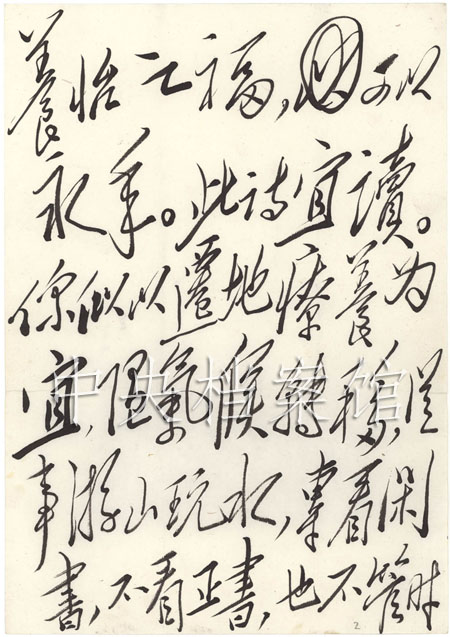 養怡之福，可以
永年。此诗宜讀。
你似以遷地療養为
宜，随氣候轉移，從
中央档案馆
事游山玩水，專看闲
書，不看正書，也不管时
2